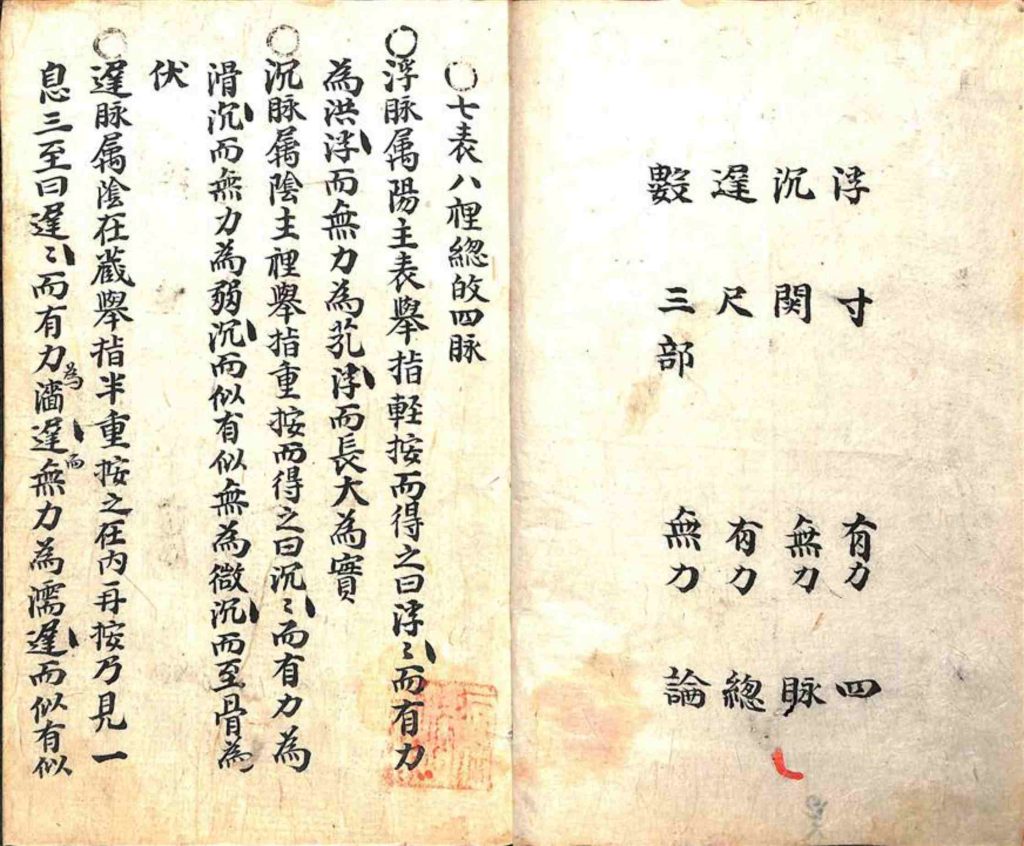 浮 寸 有力 四
沉 関 無力 脉
遅 尺 有力 總
數 三部 無力 論
○七表八裡總的四脉
○浮脉属陽主表舉指軽按而得之曰浮〻而有力
為洪浮而無力為芤浮而長大為實
○沉脉属陰主裡舉指重按而得之曰沉〻而有力為
滑沉而無力為弱沉而似有似無為微沉而至骨為
伏
○遅脉属陰在蔵舉指半重按之在内再按乃見一
息三至曰遅〻而有力為濇遅而無力為濡遅而似有似